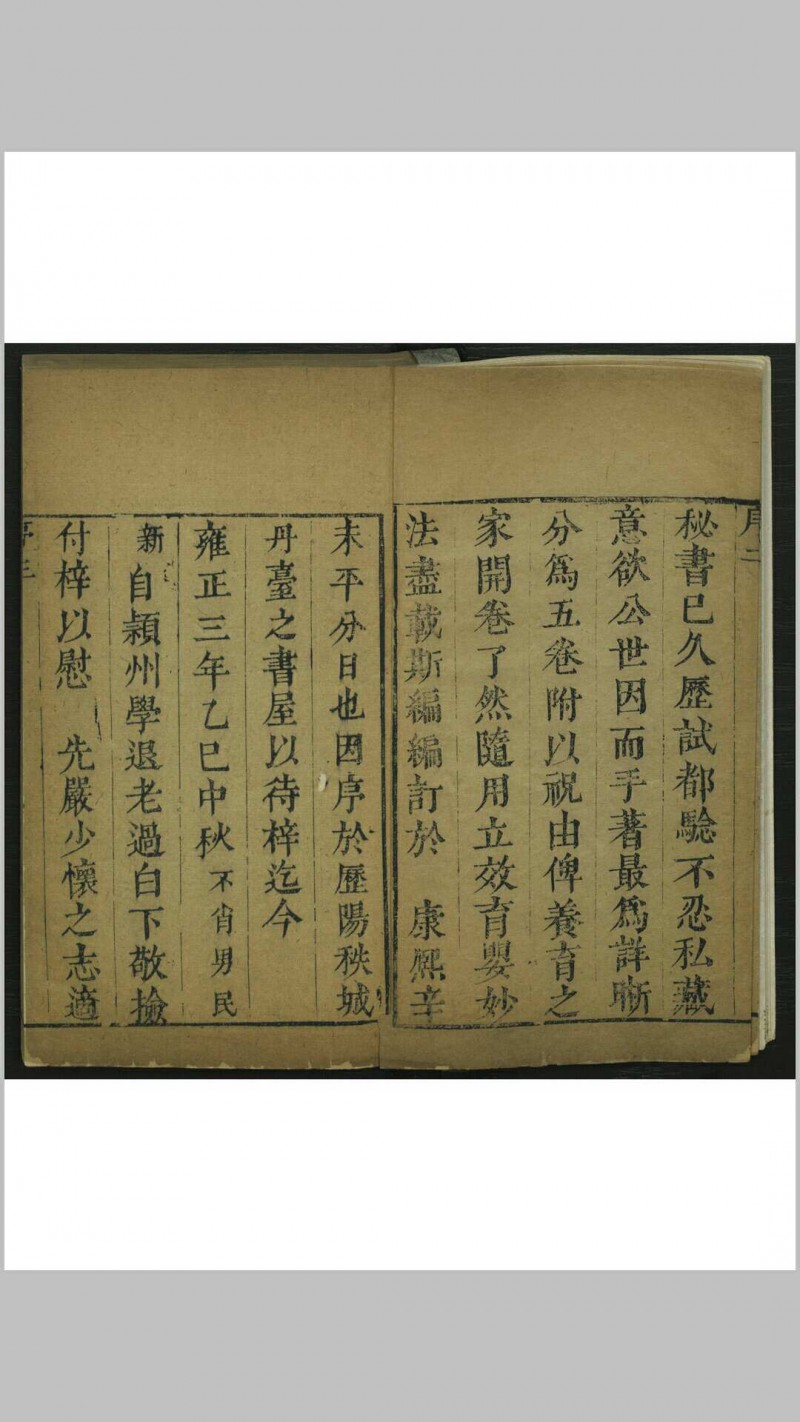 序二
秘書已久歷試都驗不忍私藏
意欲公世因而手著最爲詳晰
分爲五卷附以祝由俾養育之
家開卷了然隨用立效育嬰妙
法盡載斯編編訂於 康熙辛
未平分日也因序於歷陽秩城
丹臺之書屋以待梓迄今
雍正三年乙巳中秋不肖男民
新自潁州學退老過白下敬撿
付梓以慰 先嚴少懷之志適
序三